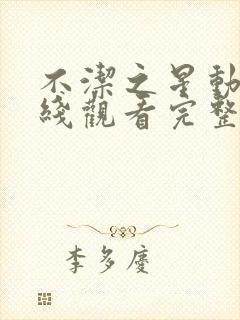 不潔之星動
綫觀看完整
李多慶